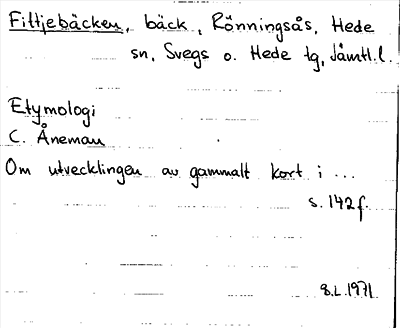 Fittjebäcken, bäck, Rönningsås, Hede
sn, Svegs o. Hede tg, Jämtl. l.
Etymologi
C. Åneman
Om utvecklingen av gammalt kort i ...
s. 142 f.
8.L.1971